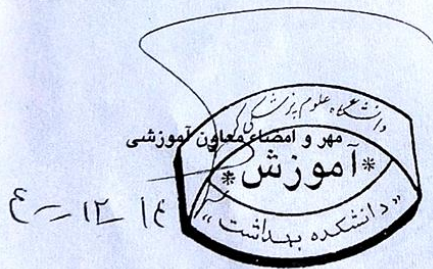 دانشگاه علوم پزشکی
مهر و امضاء معاون آموزشی
* آموزش *
«دانشکده بهداشت»
١٤ - ١٢ -